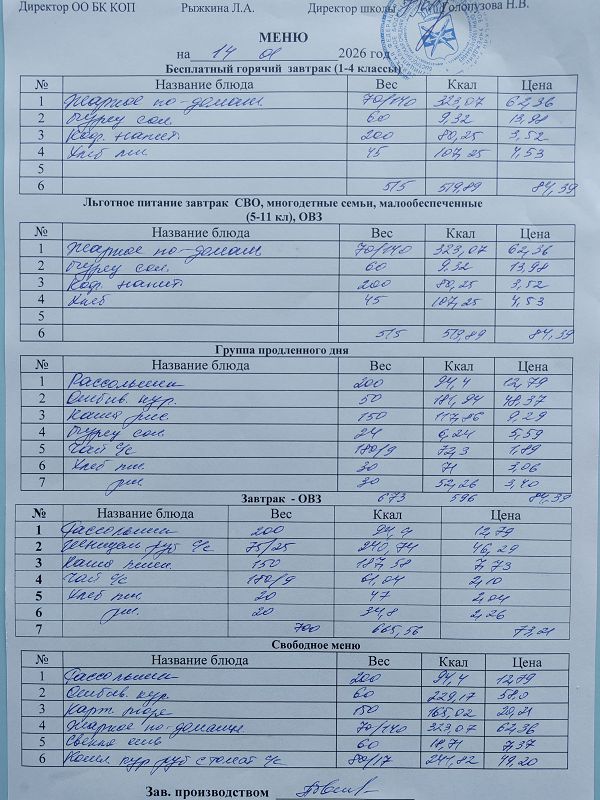 Директор ОО БК КОП Рыжкина Л.А. Директор школы Голопузова Н.В.
МЕНЮ
на 14 01 2026 год
Бесплатный горячий завтрак (1-4 классы)
№ Название блюда Вес Ккал Цена
1 Жаркое по-домаш 70/140 323,07 62,36
2 Огурец сол. 60 9,32 13,98
3 Коф. напит 200 80,25 3,52
4 Хлеб пш. 45 107,25 4,53
5
6 515 519,89 84,39
Льготное питание завтрак СВО, многодетные семьи, малообеспеченные
(5-11 кл), ОВЗ
№ Название блюда Вес Ккал Цена
1 Жаркое по-домаш 70/140 323,07 62,36
2 Огурец сол. 60 9,32 13,98
3 Коф. напит 200 80,25 3,52
4 Хлеб 45 107,25 4,53
5
6 515 519,89 84,39
Группа продленного дня
№ Название блюда Вес Ккал Цена
1 Рассольник 200 94,4 12,79
2 Отбив. кур. 50 181,94 48,37
3 Каша рис. 150 117,86 9,29
4 Огурец сол. 24 6,24 5,59
5 Чай с/с 180/9 72,3 1,89
6 Хлеб пш. 30 71 3,06
7 рж. 30 52,26 3,40
673 596 84,39
Завтрак - ОВЗ
№ Название блюда Вес Ккал Цена
1 Рассольник 200 94,4 12,79
2 руб с/с 75/25 240,74 46,29
3 Каша пшен. 150 187,58 7,73
4 Чай с/с 180/9 61,04 2,10
5 Хлеб пш. 20 47 2,04
6 рж. 20 34,8 2,26
7 700 665,56 73,21
Свободное меню
№ Название блюда Вес Ккал Цена
1 Рассольник 200 94,4 12,79
2 Отбив. кур. 60 229,17 58,0
3 Карт. пюре 150 168,02 20,21
4 Жаркое по-домашн. 70/140 323,07 62,36
5 Свекла 60 18,71 7,37
6 кур руб с томат с/с 80/17 241,82 49,20
Зав. производством